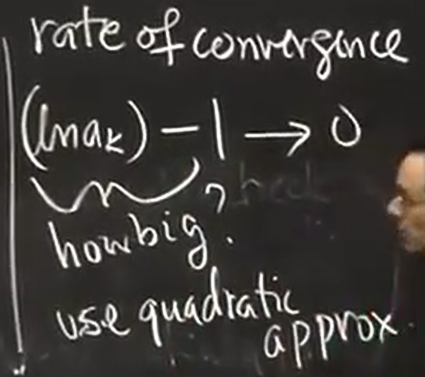 rate of convergence
(ln a_k) - 1 → 0
how big?
use quadratic
approx.